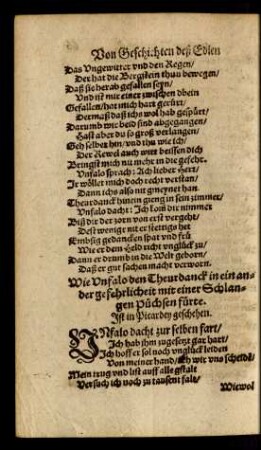 Von Geschichten deß Edlen
Das Vngewitter vnd den Regen/
Der hat die Bergstein thau bewegen/
Daß sie herab gefallen seyn/
Vnd ist mir einer zwischen dbein
Gefallen/hat mich hart gerürt/
Dermaß daß ichs wol hab gespürt/
Darumb wir beid sind abgegangen/
Hast aber du so groß verlangen/
Geh selber hin/vnd thu wie ich/
Der Rewel auch wirt beissen dich
Bringst mich nu mehr in die gefehr.
Vnfalo sprach: Ach lieber Herr/
Ir wöllet mich doch recht verstan/
Dann ichs also nit gmeynet han
Theurdanck hinein gieng in sein zimmer/
Vnfalo dacht: Ich kom dir nimmer
Biß dir der zorn von erst vergeht/
Dest weniger nit er stettigs thet
Embsig gedencken spat vnd frü
Wie er dem Held richt vnglück zu/
Dann er drumb in die Welt geborn/
Daß er gut sachen macht verworn.
Wie Vnfalo den Theurdanck in ein an-
der gefehrlicheit mit einer Schlan-
gen Püchsen fürte.
Ist in Picardey geschehen.
VNfalo dacht zur selben fart/
Ich hab ihm zugesetzt gar hart/
Ich hoff er sol noch vnglück leiden
Von meiner hand/Eh wir vns scheidē/
Mein trug vnd list auff alle gstalt
Versuch ich noch zu tausent falt/
Wiewol